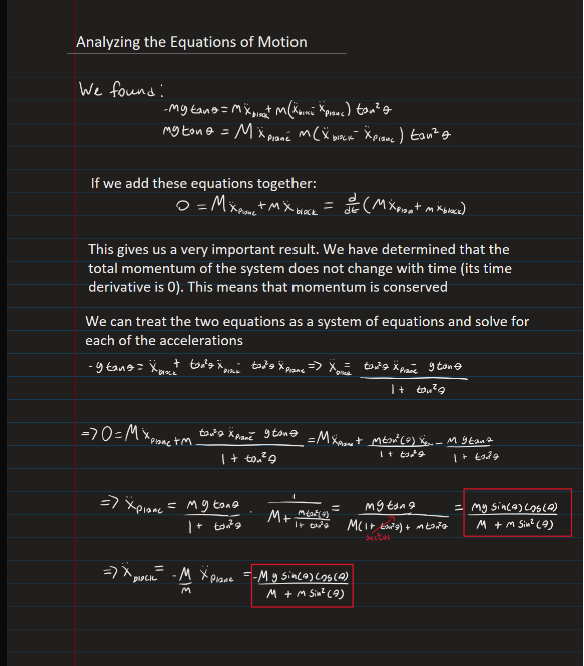 Analyzing the Equations of Motion
We found:
-mg tanθ = mẍ_block + m(ẍ_block - ẍ_plane) tan²θ
mg tanθ = Mẍ_plane - m(ẍ_block - ẍ_plane) tan²θ
If we add these equations together:
0 = Mẍ_plane + mẍ_block = d/dt (Mẋ_plane + mẋ_block)
This gives us a very important result. We have determined that the
total momentum of the system does not change with time (its time
derivative is 0). This means that momentum is conserved
We can treat the two equations as a system of equations and solve for
each of the accelerations
-g tanθ = ẍ_block + tan²θ ẍ_block - tan²θ ẍ_plane => ẍ_block = (tan²θ ẍ_plane - g tanθ) / (1 + tan²θ)
=> 0 = Mẍ_plane + m (tan²θ ẍ_plane - g tanθ) / (1 + tan²θ) = Mẍ_plane + m tan²(θ) ẍ_p / (1 + tan²θ) - m g tanθ / (1 + tan²θ)
=> ẍ_plane = m g tanθ / (1 + tan²θ) · 1 / (M + m tan²(θ) / (1 + tan²θ)) = mg tanθ / (M(1 + tan²θ) + m tan²θ) = mg sin(θ) cos(θ) / (M + m sin²(θ))
sec²(θ)
=> ẍ_block = -M/m ẍ_plane = -M g sin(θ) cos(θ) / (M + m sin²(θ))